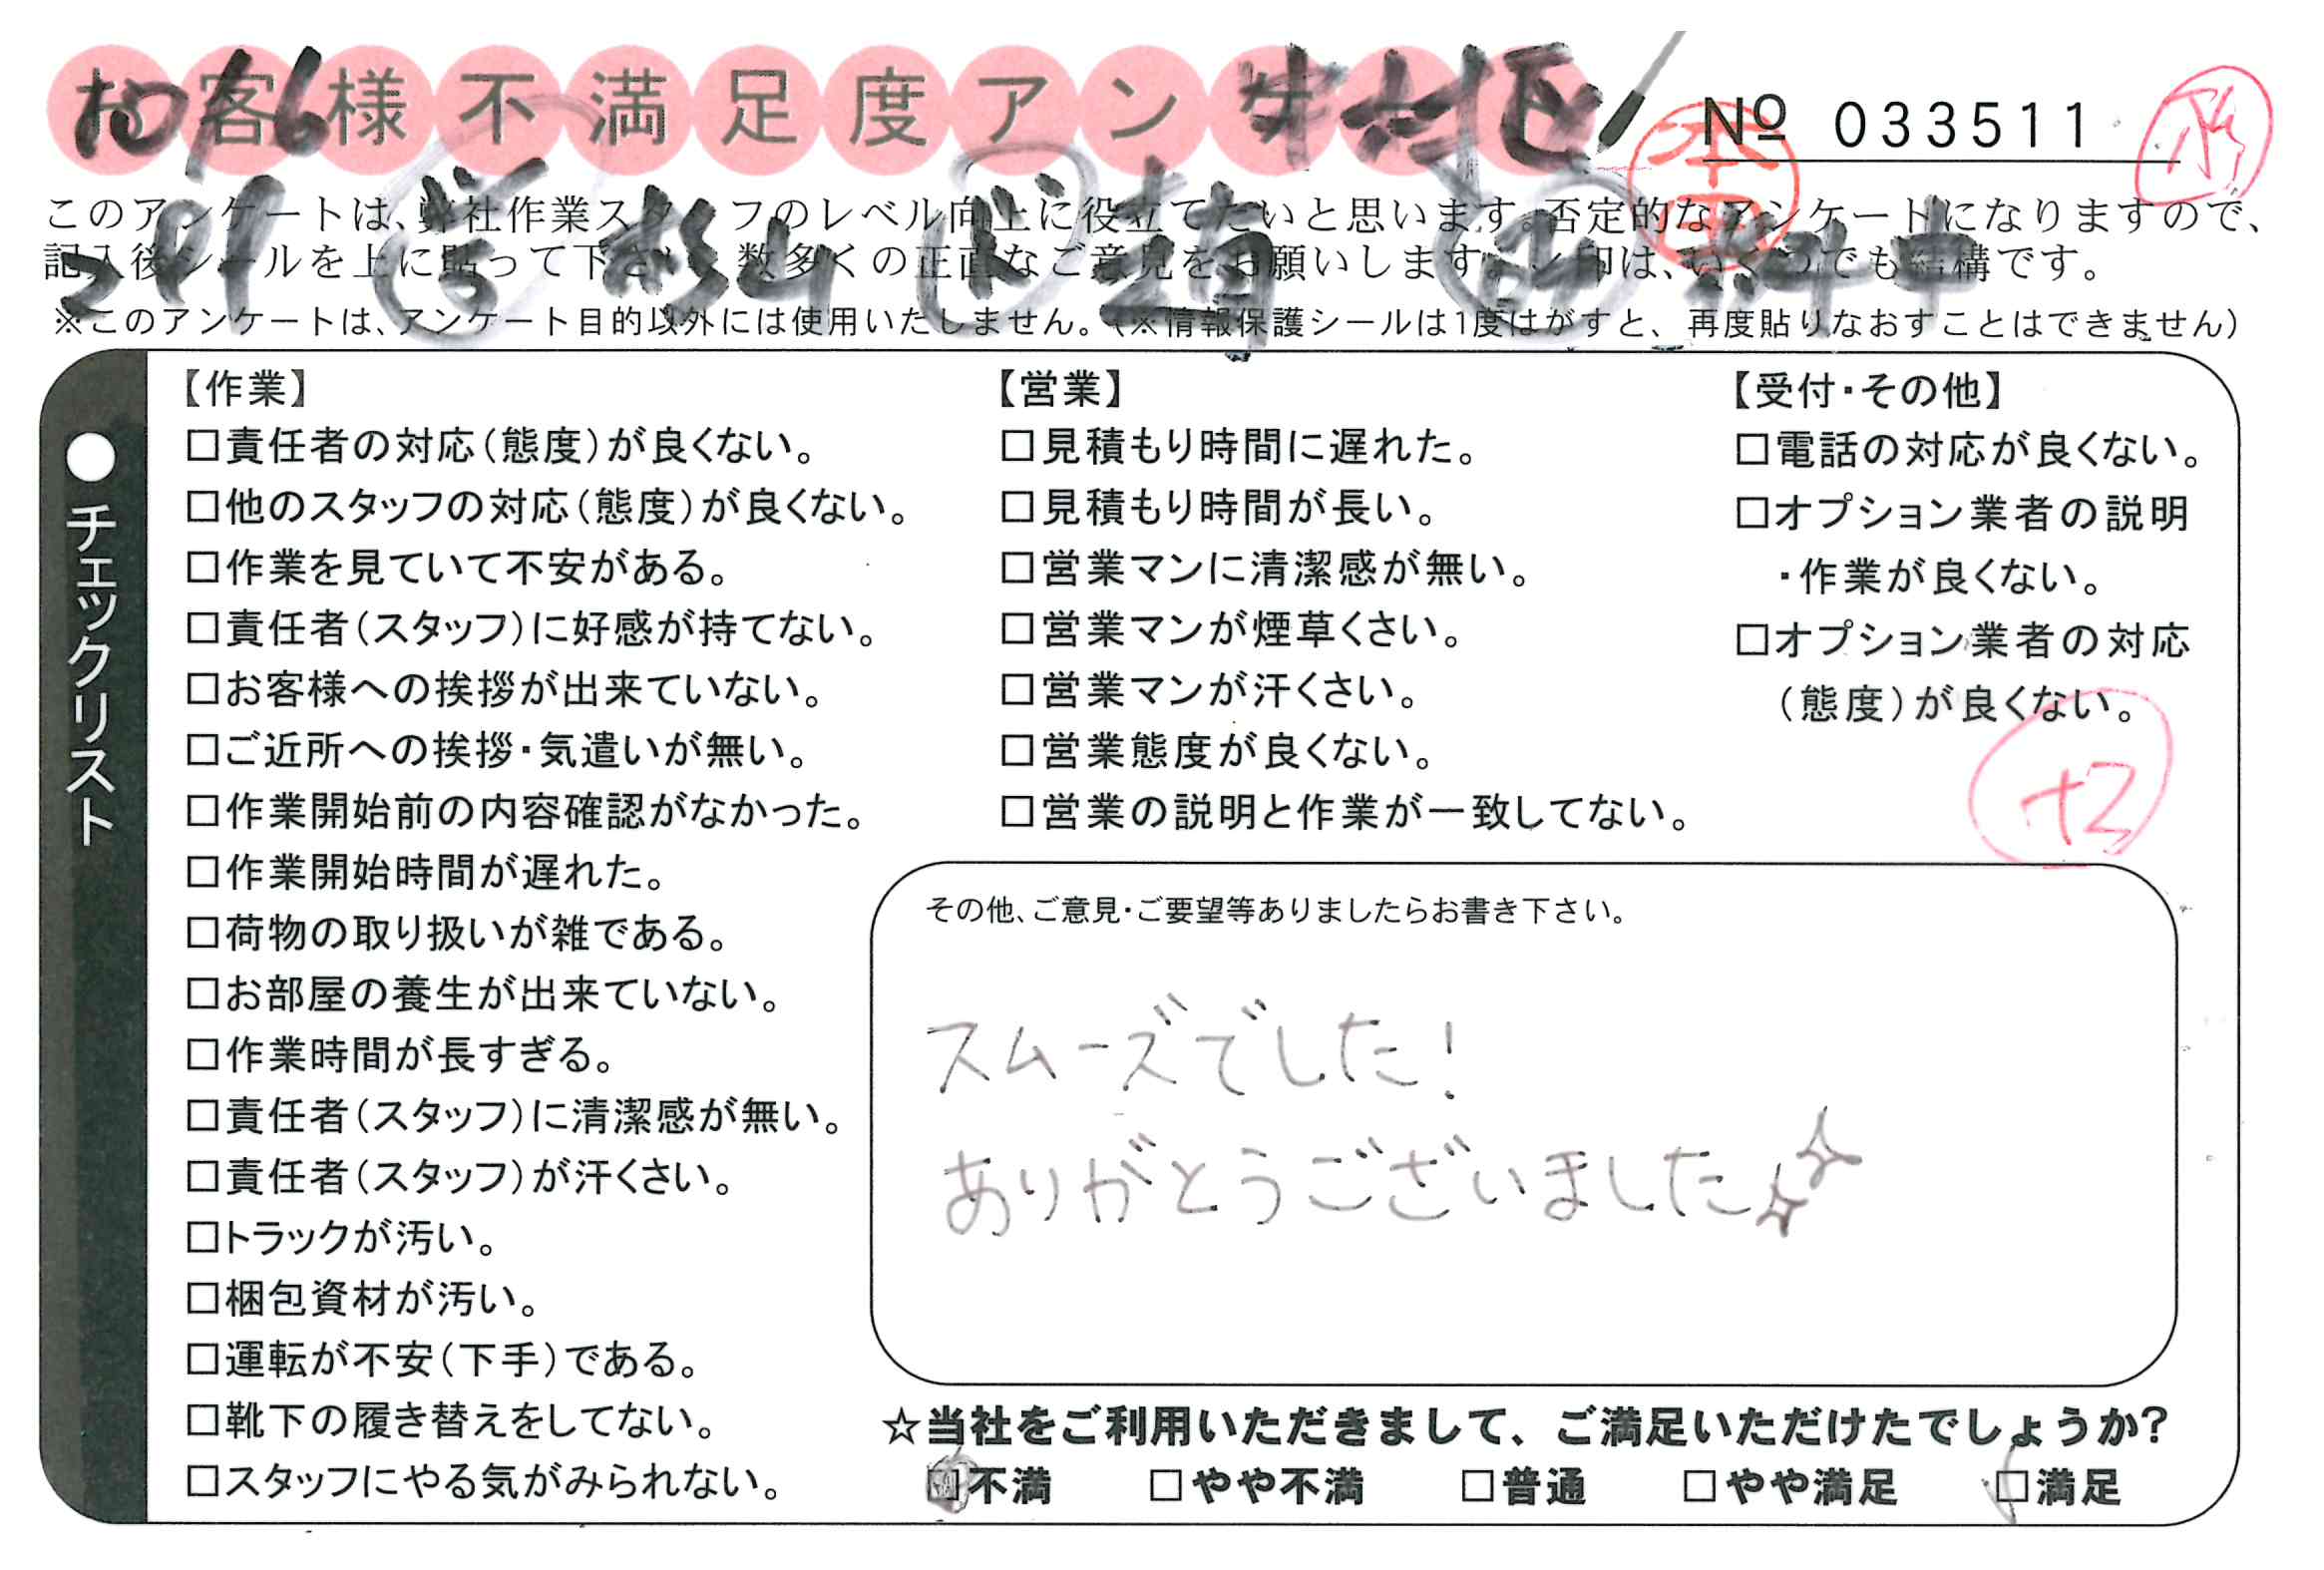 お客様不満足度アンケート
10/16
中央区
№ 033511
本田
このアンケートは、弊社作業スタッフのレベル向上に役立てたいと思います。否定的なアンケートになりますので、
記入後シールを上に貼って下さい。数多くの正直なご意見をお願いします。レ印は、いくつでも結構です。
※このアンケートは、アンケート目的以外には使用いたしません。（※情報保護シールは1度はがすと、再度貼りなおすことはできません）
●チェックリスト
【作業】
□責任者の対応（態度）が良くない。
□他のスタッフの対応（態度）が良くない。
□作業を見ていて不安がある。
□責任者（スタッフ）に好感が持てない。
□お客様への挨拶が出来ていない。
□ご近所への挨拶・気遣いが無い。
□作業開始前の内容確認がなかった。
□作業開始時間が遅れた。
□荷物の取り扱いが雑である。
□お部屋の養生が出来ていない。
□作業時間が長すぎる。
□責任者（スタッフ）に清潔感が無い。
□責任者（スタッフ）が汗くさい。
□トラックが汚い。
□梱包資材が汚い。
□運転が不安（下手）である。
□靴下の履き替えをしてない。
□スタッフにやる気がみられない。
【営業】
□見積もり時間に遅れた。
□見積もり時間が長い。
□営業マンに清潔感が無い。
□営業マンが煙草くさい。
□営業マンが汗くさい。
□営業態度が良くない。
□営業の説明と作業が一致してない。
【受付・その他】
□電話の対応が良くない。
□オプション業者の説明
・作業が良くない。
□オプション業者の対応
（態度）が良くない。
その他、ご意見・ご要望等ありましたらお書き下さい。
スムーズでした！
ありがとうございました
☆当社をご利用いただきまして、ご満足いただけたでしょうか？
□不満 □やや不満 □普通 □やや満足 □満足